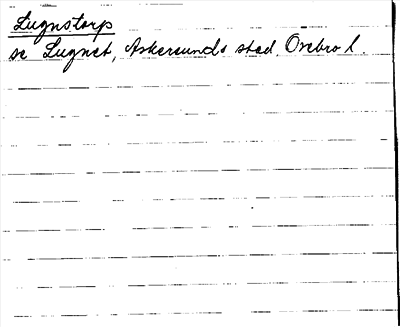 Lugnstorp
se Lugnet, Askersunds stad, Örebro l.